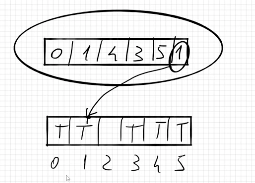 0 1 4 3 5 1
T T T T T
0 1 2 3 4 5